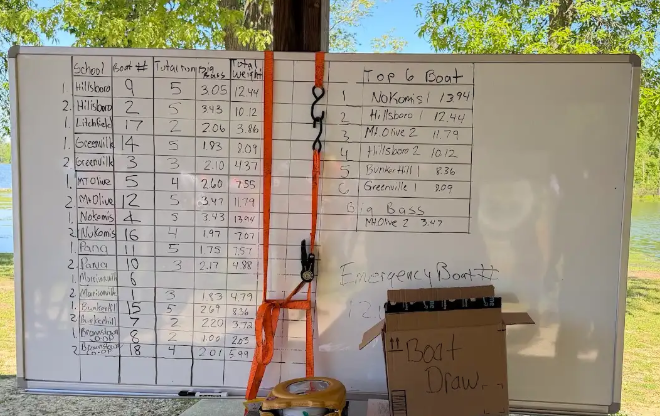 School Boat # Total Fish Big Bass Total Weight
1. Hillsboro 9 5 3.05 12.44
2. Hillsboro 2 5 3.43 10.12
1. Litchfield 17 2 2.06 3.86
1. Greenville 14 5 1.83 8.09
2 Greenville 3 3 2.10 4.37
1. MT Olive 5 4 2.60 7.55
2. Mt Olive 12 5 3.47 11.79
1. Nokomis 4 5 3.43 13.94
2. Nokomis 16 4 1.97 7.07
1. Pana 11 5 1.75 7.57
2. Pana 10 3 2.17 4.88
1. Morrisonville 6
2. Morrisonville 1 3 1.83 4.79
1. Bunkerhill 15 5 2.69 8.36
2 Bunkerhill 7 2 2.20 3.72
1. Brownstown co-op 8 2 2.03
2. Brownstown co-op 18 4 2.01 5.99
Top 6 Boat
1 Nokomis 1 13.94
2 Hillsboro 1 12.44
3 Mt. Olive 2 11.79
4 Hillsboro 2 10.12
5 Bunker Hill 1 8.36
6 Greenville 1 8.09
Big Bass
Mt. Olive 2 3.47
Emergency Boat #
Boat
Draw